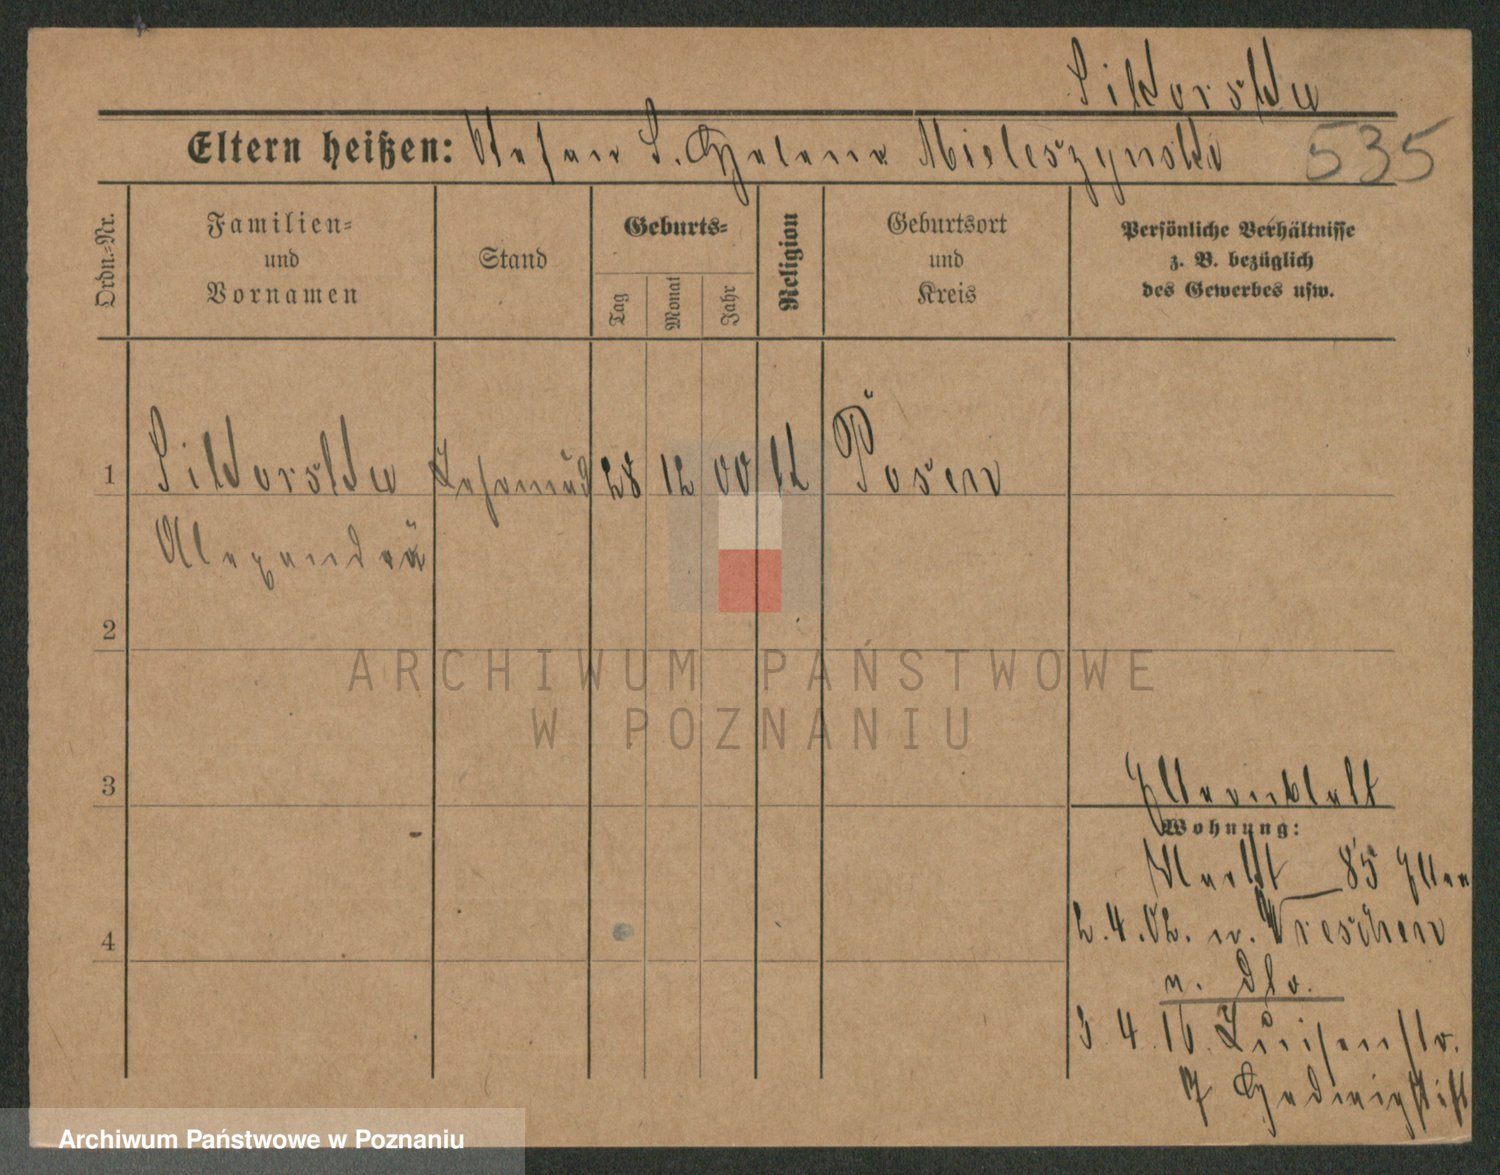 Sikorska
Eltern heißen: Stefan S. Helene Mieleszynska 535
Ordn.-Nr.
Familien-
und
Vornamen
Stand
Geburts-
Tag
Monat
Jahr
Religion
Geburtsort
und
Kreis
Persönliche Verhältnisse
z. B. bezüglich
des Gewerbes usw.
1 Sikorska 28 12 00 kt Posen
Alexandra
2
ARCHIWUM PAŃSTWOWE
W POZNANIU
3
Elternblatt
Wohnung:
Markt 85 Eltern
2.4.02. n. Wreschen
4
3 4 16. Luisenstr.
7 Hedwigstift
Archiwum Państwowe w Poznaniu